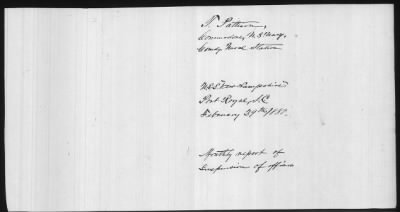 T. Pattison,
Commodore, U.S. Navy,
Comdg Naval Station
U.S.S. "New Hampshire"
Port Royal, S.C.
February 27th/1880.
Monthly report of
suspension of officers